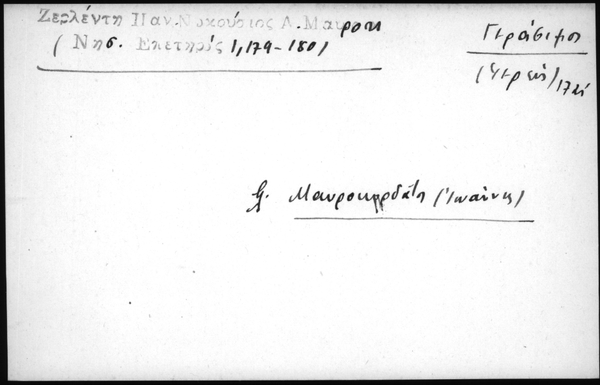 Ζερλέντη Παν. Νικούσιος Α. Μαυρου
(Νησ. Επετηρίς 1, 179-180)
Γεράσιμοι
(ἱερεύς) 17
Μαυροκορδάτη (Ἰωάννης)